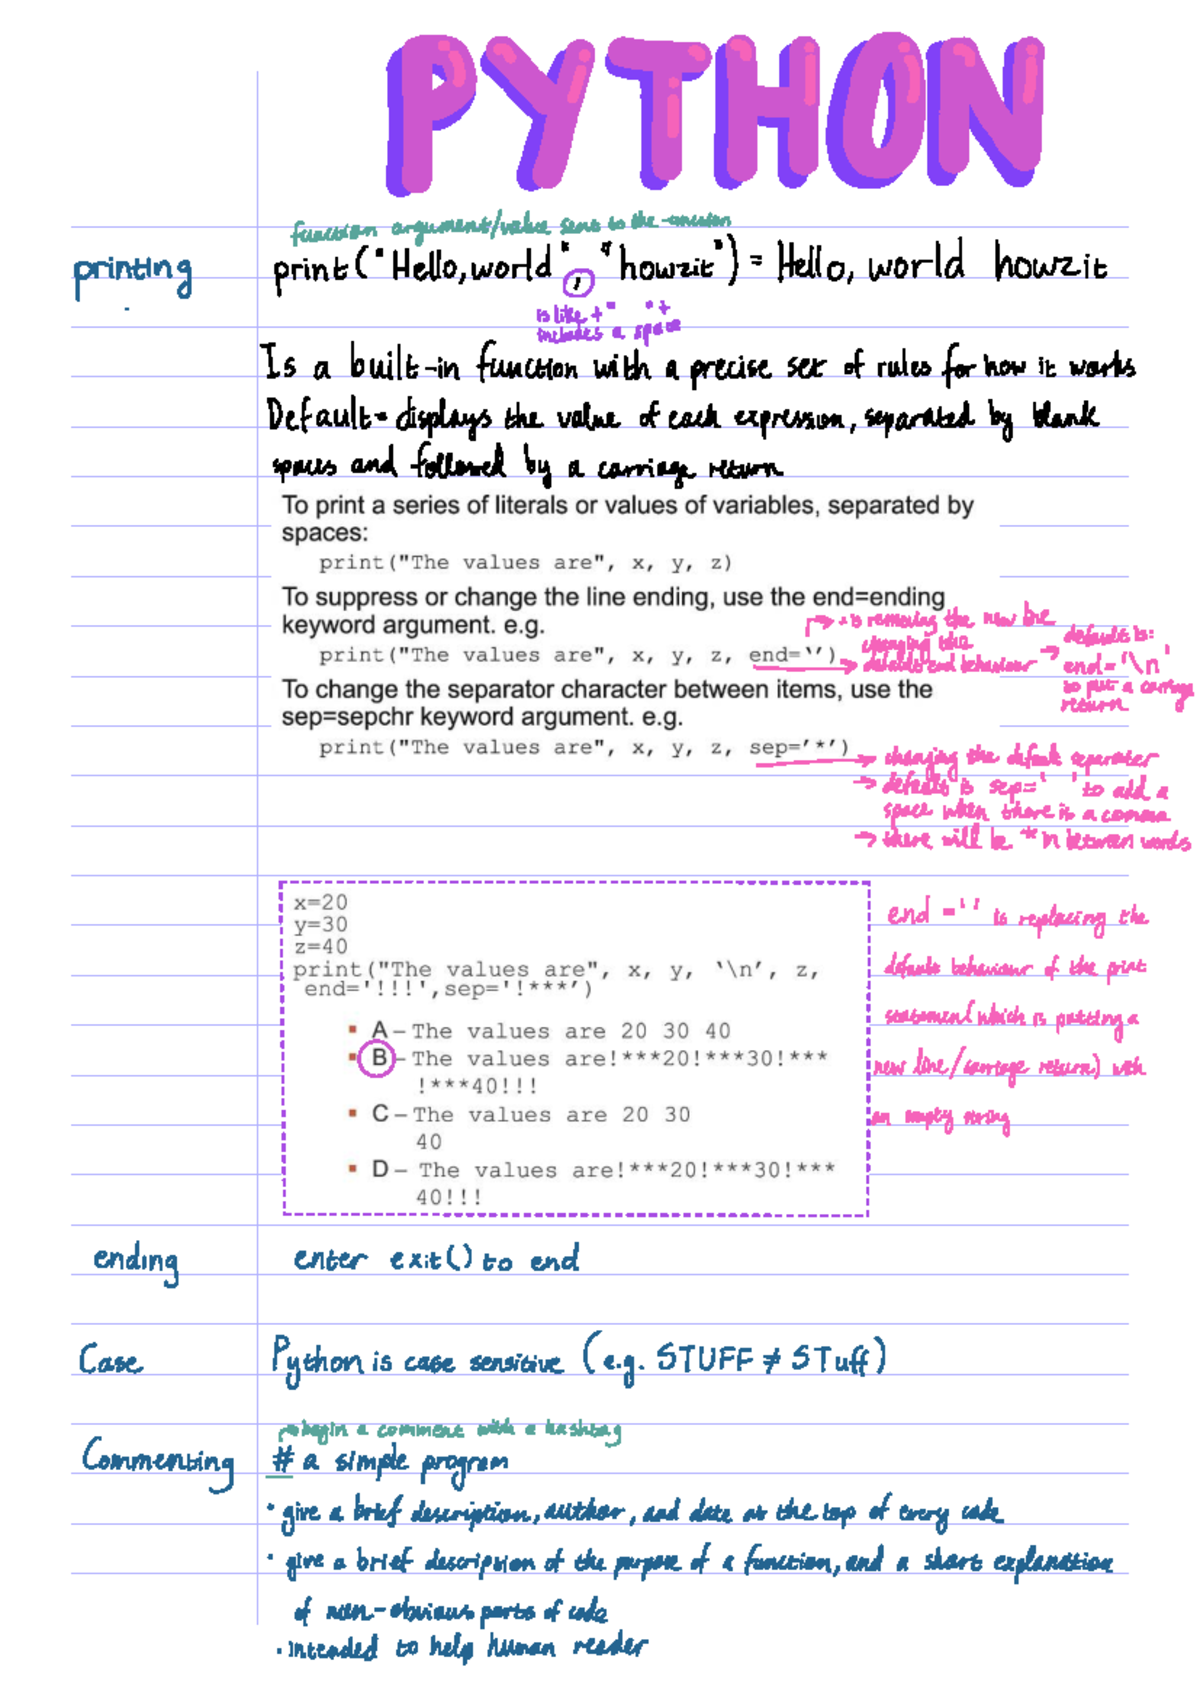 PYTHON
function argument/value sent to the function
printing
print("Hello, world", "howzit") = Hello, world howzit
is like +" "+
includes a space
Is a built-in function with a precise set of rules for how it works
Default = displays the value of each expression, separated by blank
spaces and followed by a carriage return
To print a series of literals or values of variables, separated by
spaces:
print("The values are", x, y, z)
To suppress or change the line ending, use the end=ending
keyword argument. e.g.
→ is removing the new line
print("The values are", x, y, z, end=‘’)
changing the
→ default end behaviour
→ default is:
end='\n'
to put a carriage
return
To change the separator character between items, use the
sep=sepchr keyword argument. e.g.
print("The values are", x, y, z, sep='*')
→ changing the default separater
→ default is sep=' ' to add a
space when there is a comma
→ there will be * in between words
x=20
y=30
z=40
print("The values are", x, y, ‘\n’, z,
end='!!!',sep='!***’)
A – The values are 20 30 40
B – The values are!***20!***30!***
!***40!!!
C – The values are 20 30
40
D – The values are!***20!***30!***
40!!!
end = '' is replacing the
default behaviour of the print
statement which is putting a
new line/carriage return) with
an empty string
ending
enter exit() to end
Case
Python is case sensitive (e.g. STUFF ≠ STuff)
→ begin a comment with a hashtag
Commenting
# a simple program
· give a brief description, author, and date at the top of every code
· give a brief description of the purpose of a function, and a short explanation
of non-obvious parts of code
· intended to help human reader